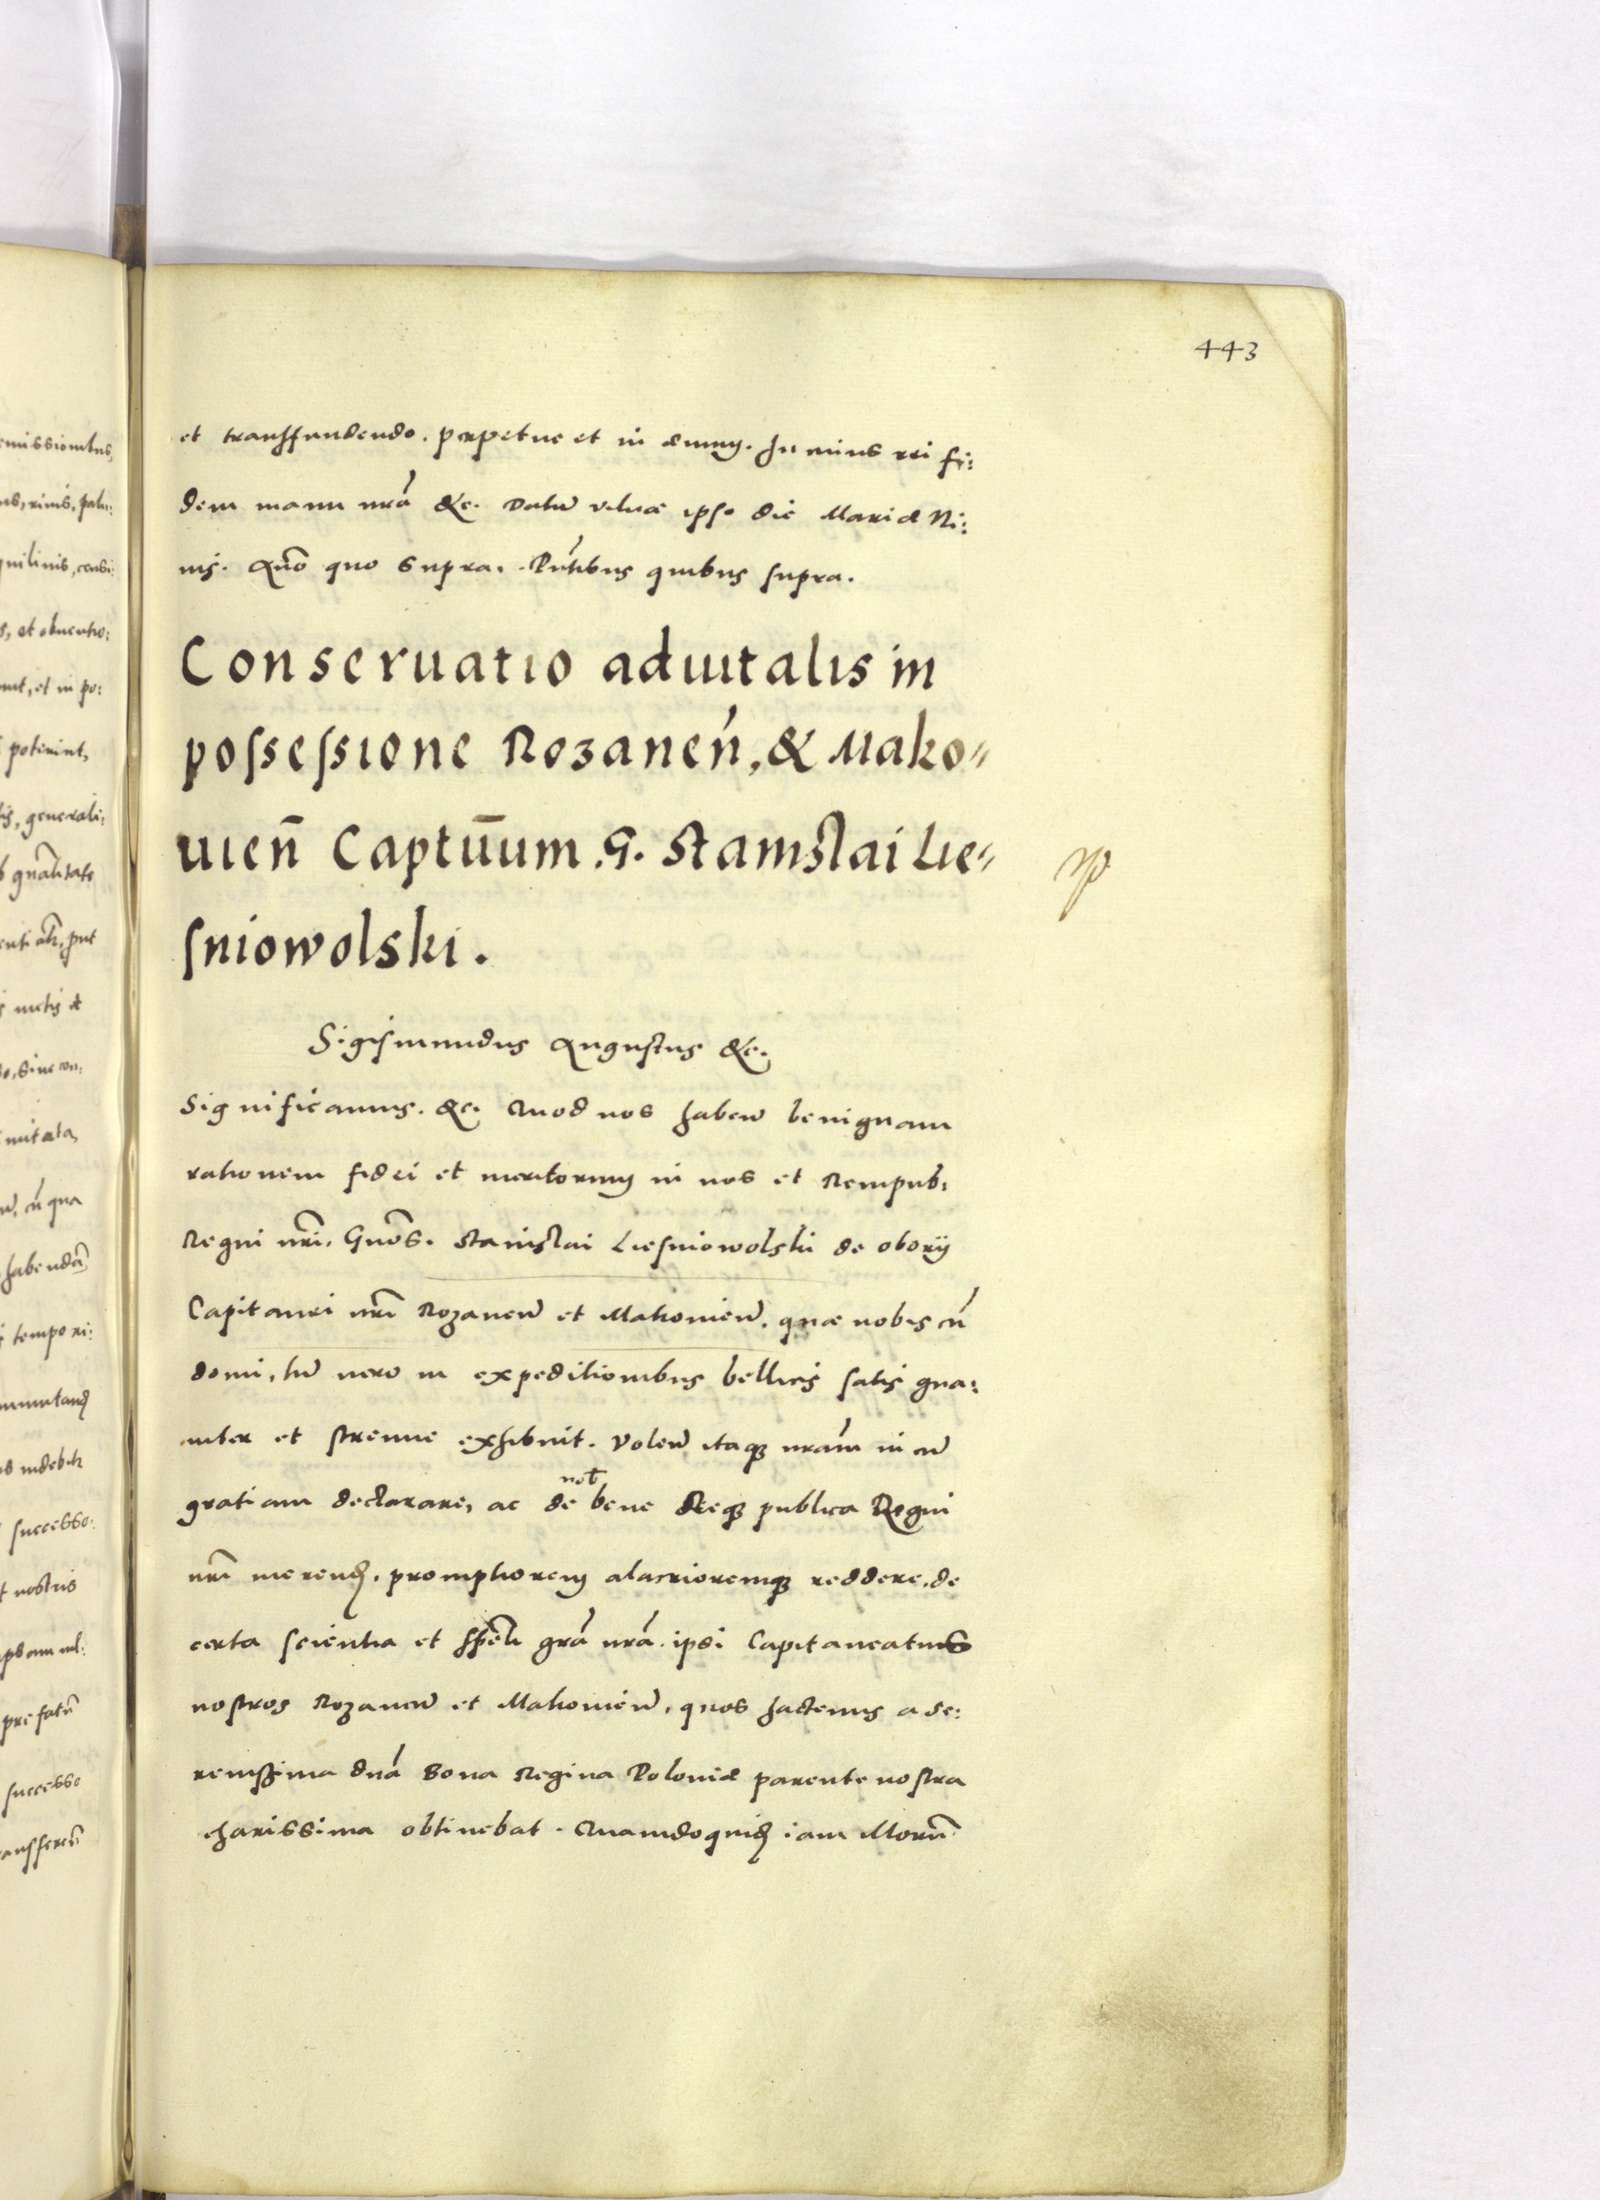 443
et transfundendo. perpetuo et in ævum. In cuius rei fi:
dem manu nrã &c. Datũ Vilnæ ipso die Mariæ Ni:
vis. Año quo supra. Pñtibus quibus supra.
Conseruatio aduitalis in
possessione Rozaneń, & Mako=
uień Captũum. G. Stanislai Lie=
sniowolski.
Sigismundus Augustus &c.
Significamus. &c. Quod nos habeñ benignam
rationem fidei et meritorum in nos et Rempub:
Regni nrĩ. Gnõs. Stanislai Liesniowolski de oborÿ
Capitanei nrĩ Rozaneñ et Makouieñ. quæ nobis cũ
domi, tũ uero in expeditionibus bellicis satis gna:
uiter et strenue exhibuit. Voleñ itaq3 nrãm in eũ
gratiam declarare, ac de nob̃ bene Reiq3 publica Regni
nrĩ merend. promptiorem alacrioremq3 reddere. de
certa scientia et sp̃eli grã nrã. ipsi Capitaneatus
nostros Rozaneñ et Makouieñ, quos hactenus a Se:
renissima dnã Bona Regina Poloniæ parente nostra
charissima obtinebat. Quandoquid iam Morũ